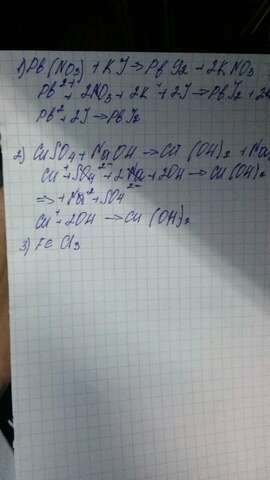 1) Pb(NO3) + KJ → PbJ2 + 2KNO3
Pb²⁺ + 2NO3 + 2K⁺ + 2J → PbJ2 + 2K
Pb² + 2J → PbJ2
2) CuSO4 + NaOH → Cu(OH)2 + Na2
Cu⁺ + SO4²⁻ + 2Na + 2OH → Cu(OH)2
=> + Na⁺² + SO4²⁻
Cu⁺ + 2OH → Cu(OH)2
3) FeCl3